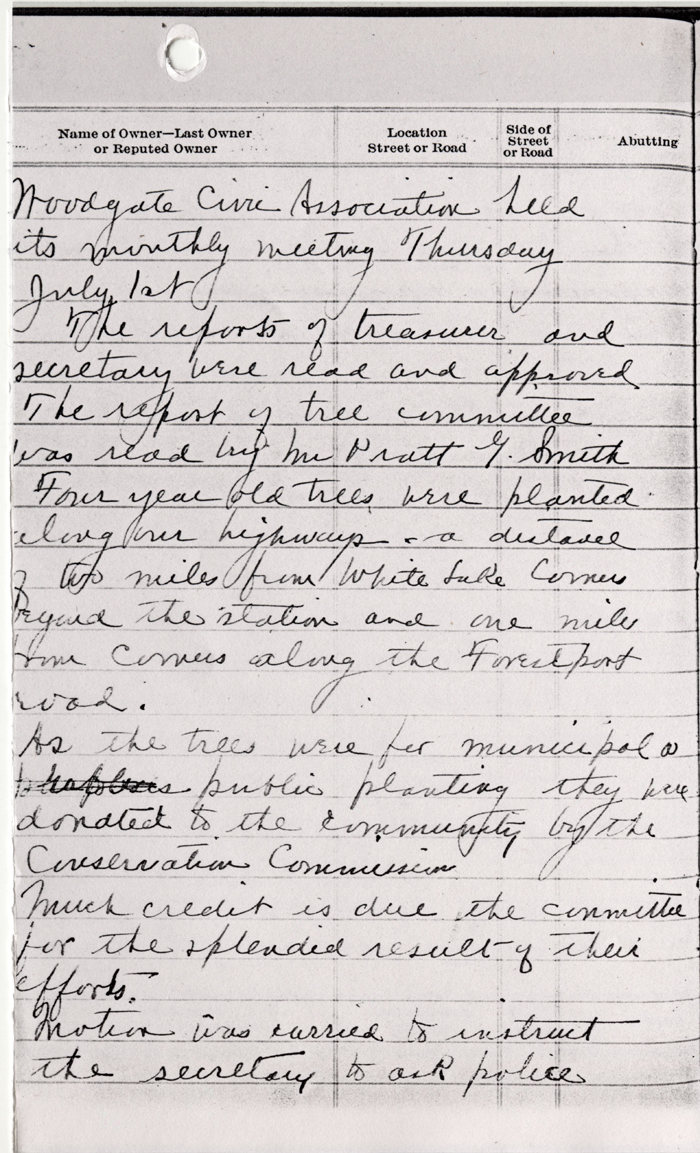 Name of Owner—Last Owner
or Reputed Owner
Location
Street or Road
Side of
Street
or Road
Abutting
Woodgate Civic Association held
its monthly meeting Thursday
July 1st
The reports of treasurer and
secretary were read and approved
The report of tree committee
was read by Mr Pratt G. Smith
Four year old trees were planted
along our highways - a distance
of two miles from White Lake Corners
beyond the station and one mile
from Corners along the Forestport
road.
As the trees were for municipal o
public planting they were
donated to the community by the
Conservation Commission
Much credit is due the committee
for the splendid result of their
efforts.
Motion was carried to instruct
the secretary to ask police